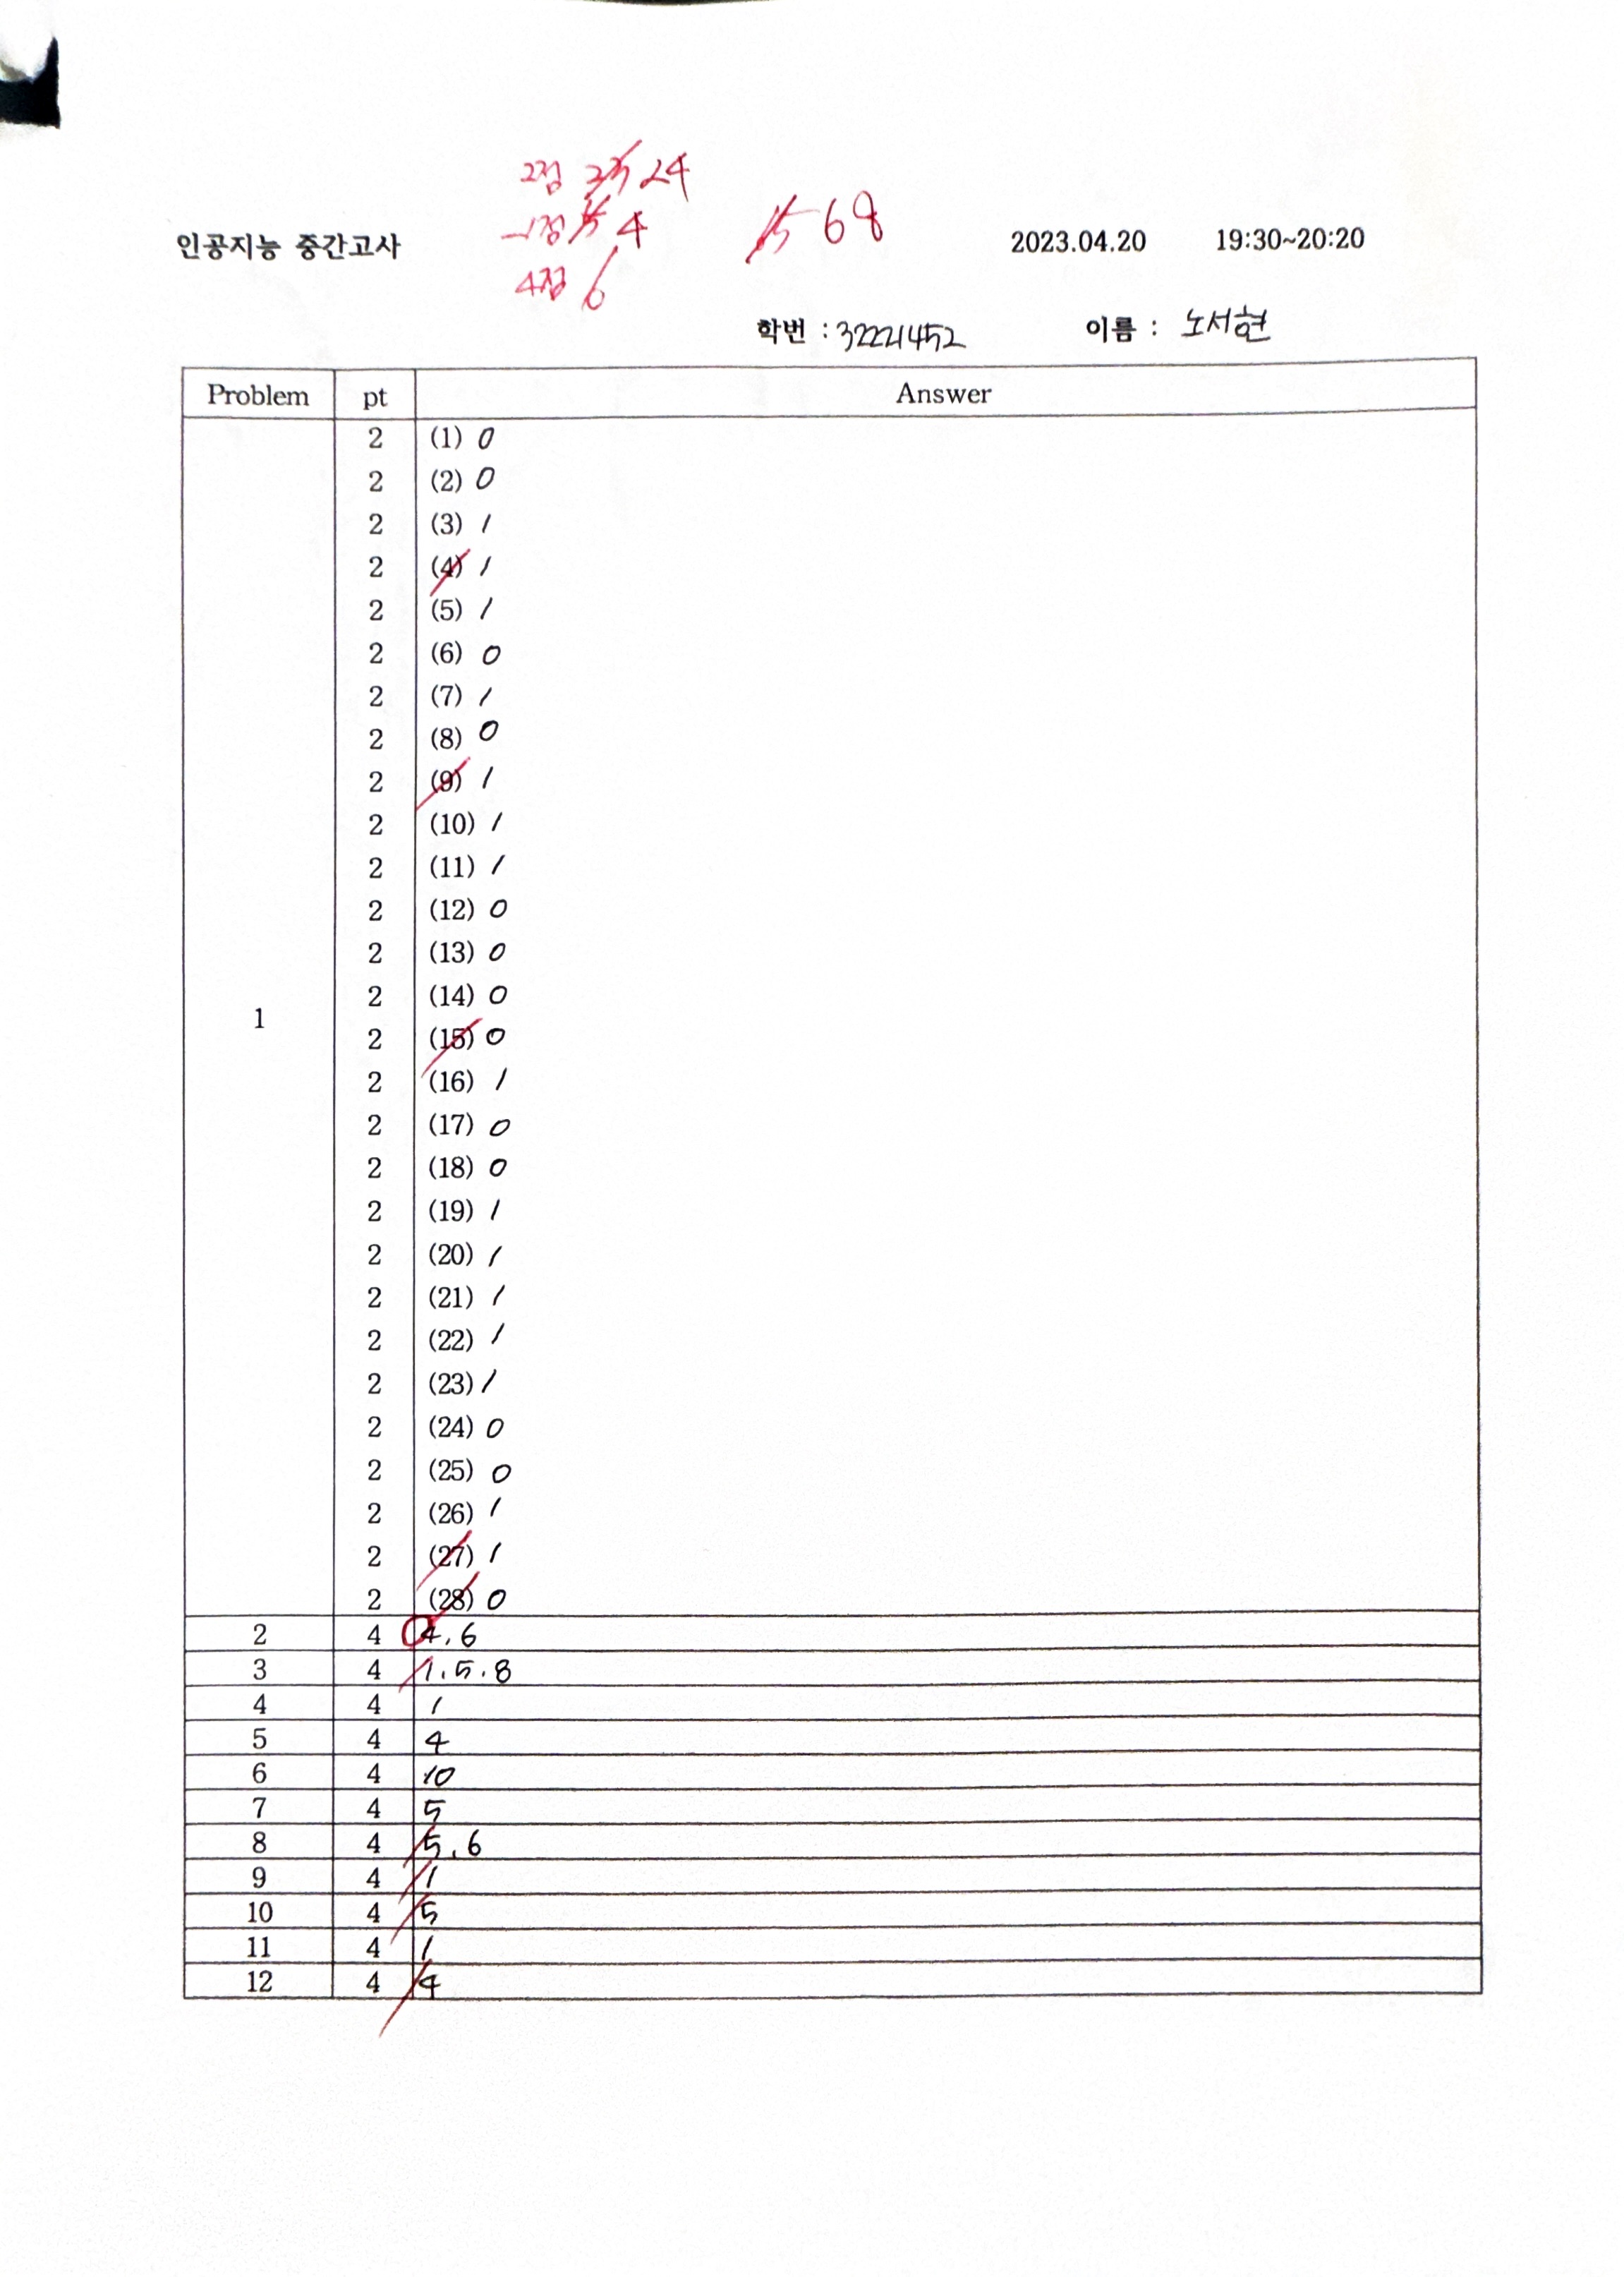 2점 24
-1점 4
4점 6
68
인공지능 중간고사
2023.04.20 19:30~20:20
학번 : 32221452 이름 : 노서현
Problem pt Answer
1
2 (1) 0
2 (2) 0
2 (3) 1
2 (4) 1
2 (5) 1
2 (6) 0
2 (7) 1
2 (8) 0
2 (9) 1
2 (10) 1
2 (11) 1
2 (12) 0
2 (13) 0
2 (14) 0
2 (15) 0
2 (16) 1
2 (17) 0
2 (18) 0
2 (19) 1
2 (20) 1
2 (21) 1
2 (22) 1
2 (23) 1
2 (24) 0
2 (25) 0
2 (26) 1
2 (27) 1
2 (28) 0
2 4 4, 6
3 4 1, 5, 8
4 4 1
5 4 4
6 4 10
7 4 5
8 4 5, 6
9 4 1
10 4 5
11 4 1
12 4 4